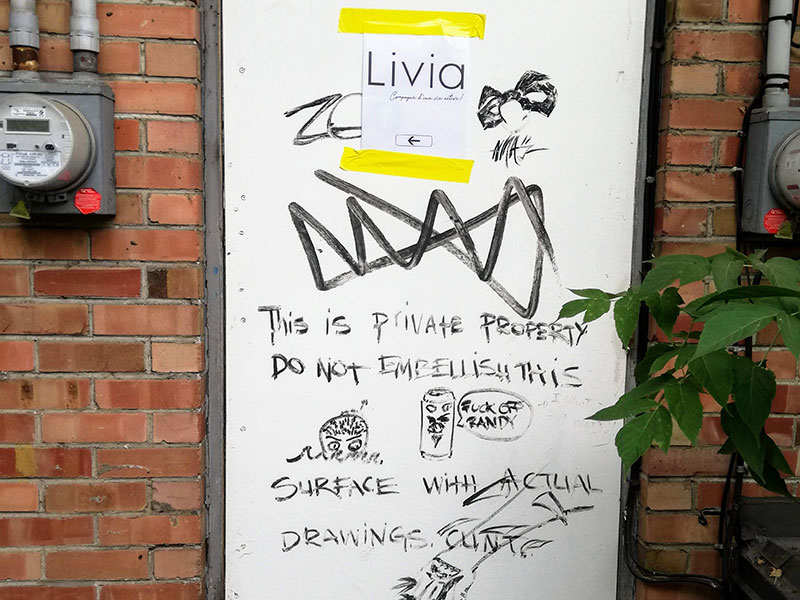 Livia
Compagne d'une vie active!
ZO
THIS IS PRIVATE PROPERTY
DO NOT EMBELLISH THIS
FUCK OFF
RANDY
SURFACE WITH ACTUAL
DRAWINGS. CUNT.